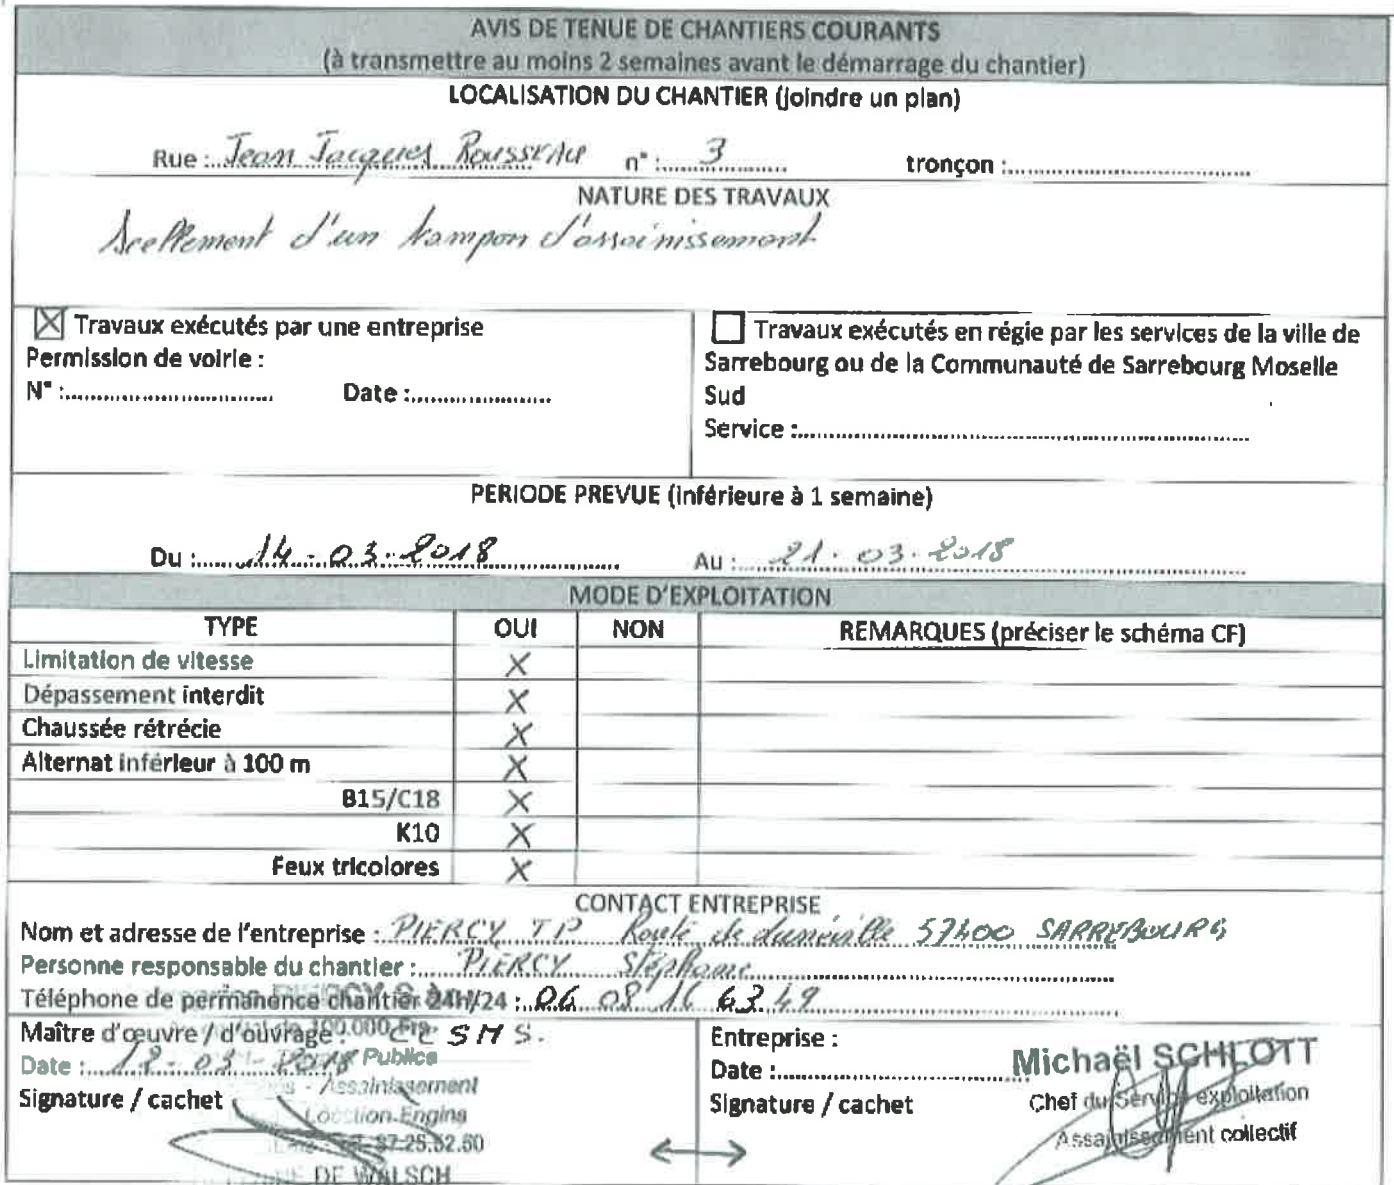 AVIS DE TENUE DE CHANTIERS COURANTS
(à transmettre au moins 2 semaines avant le démarrage du chantier)
LOCALISATION DU CHANTIER (joindre un plan)
Rue : Jean Jacques Rousseau n° : 3 tronçon :
NATURE DES TRAVAUX
Scellement d'un tampon d'assainissement
Travaux exécutés par une entreprise
Permission de voirie :
N° : Date :
Travaux exécutés en régie par les services de la ville de
Sarrebourg ou de la Communauté de Sarrebourg Moselle
Sud
Service :
PERIODE PREVUE (inférieure à 1 semaine)
Du : 14-03-2018 Au : 21-03-2018
MODE D'EXPLOITATION
TYPE OUI NON REMARQUES (préciser le schéma CF)
Limitation de vitesse X
Dépassement interdit X
Chaussée rétrécie X
Alternat inférieur à 100 m X
B15/C18 X
K10 X
Feux tricolores X
CONTACT ENTREPRISE
Nom et adresse de l'entreprise : PIERCY TP Route de Luneville 57400 SARREBOURG
Personne responsable du chantier : PIERCY Stéphane
Téléphone de permanence chantier 24H/24 : 06 08 16 63 49
Maître d'œuvre / d'ouvrage : CCSMS.
100.000 Frs
Date : 12-03-2018
Publics
- Assainissement
Signature / cachet
Location-Engins
87.25.52.60
DE WALSCH
Entreprise :
Date :
Signature / cachet
Michaël SCHLOTT
Chef du Service exploitation
Assainissement collectif